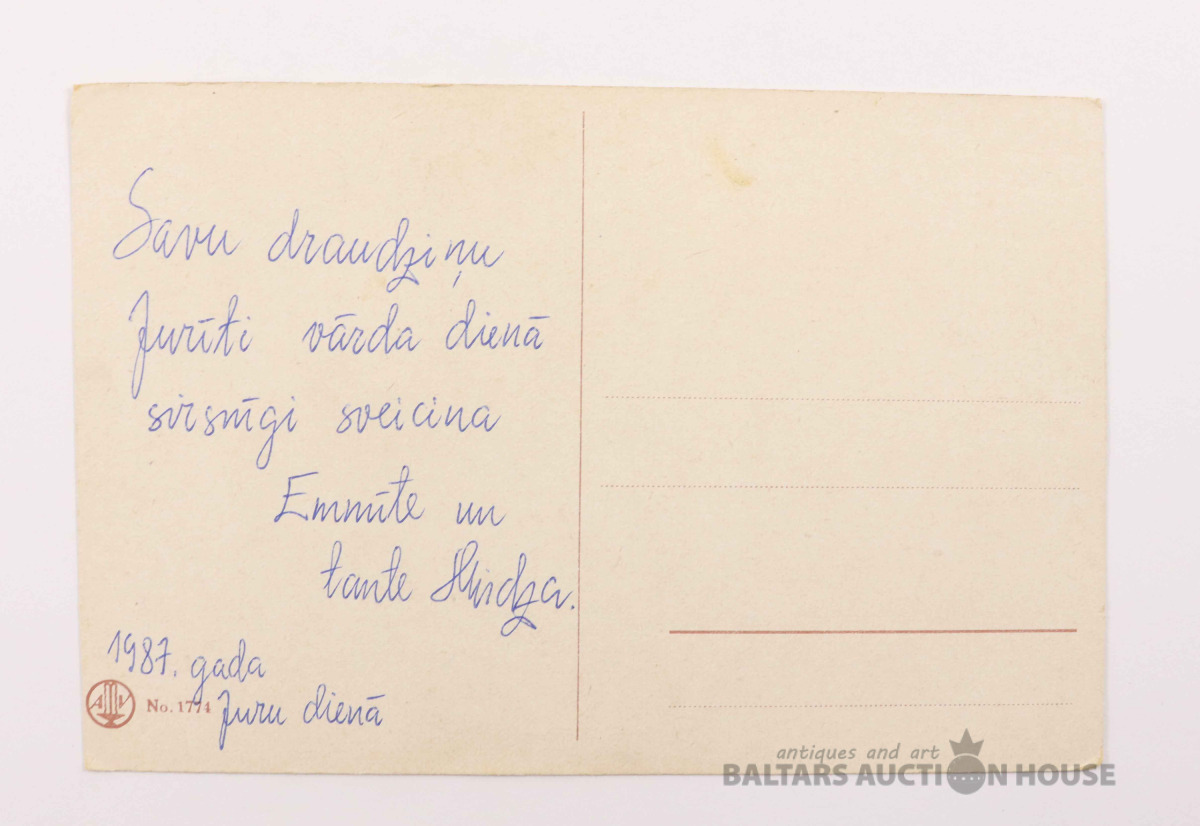 Savu draudziņu
Jurīti vārda dienā
sirsnīgi sveicina
Emmīte un
tante Mirdza.
1987. gada
Juru dienā
No. 1774
antiques and art
BALTARS AUCTION HOUSE